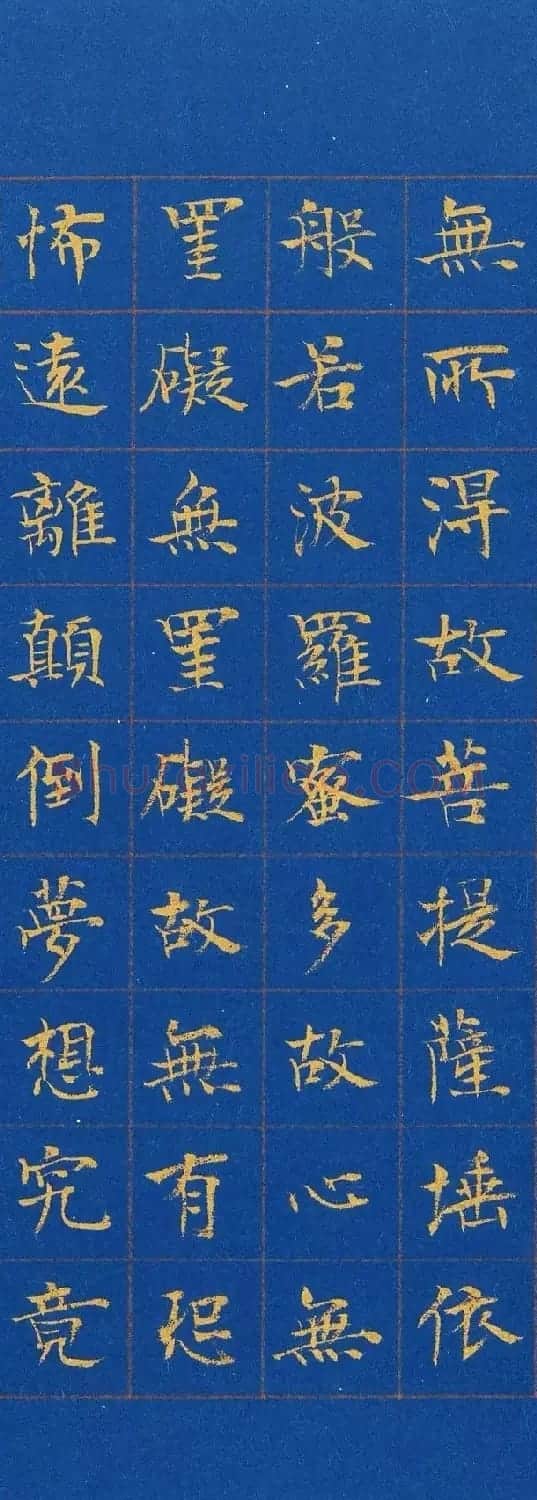 無所得故菩提薩埵依
般若波羅蜜多故心無
罣礙無罣礙故無有恐
怖遠離顛倒夢想究竟